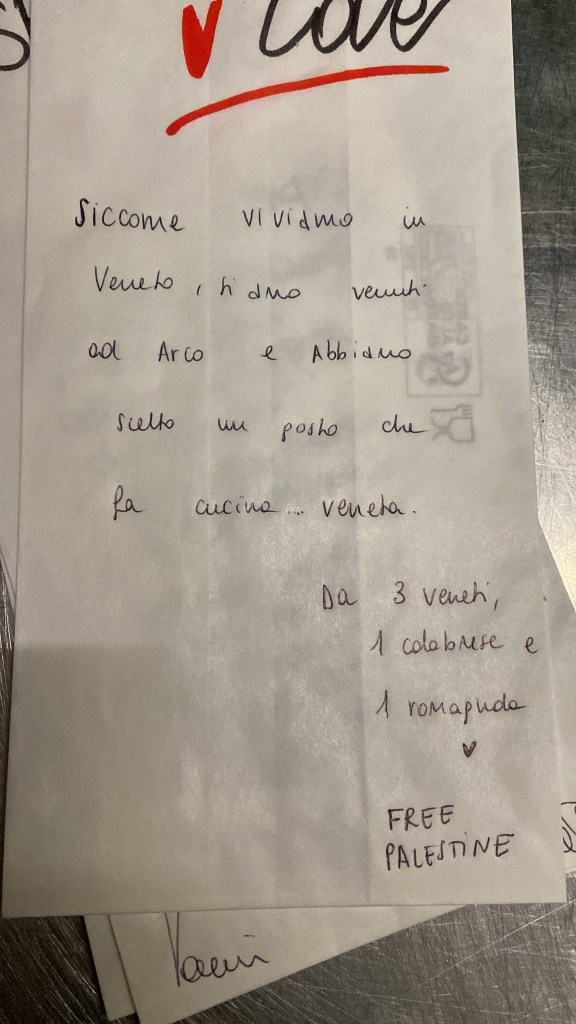 Love
Siccome viviamo in
Veneto, siamo venuti
ad Arco e Abbiamo
scelto un posto che
fa cucina... veneta.
Da 3 veneti,
1 calabrese e
1 romagnola
♥
FREE
PALESTINE